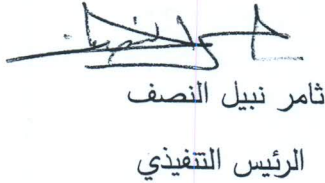 ثامر نبيل النصف
الرئيس التنفيذي